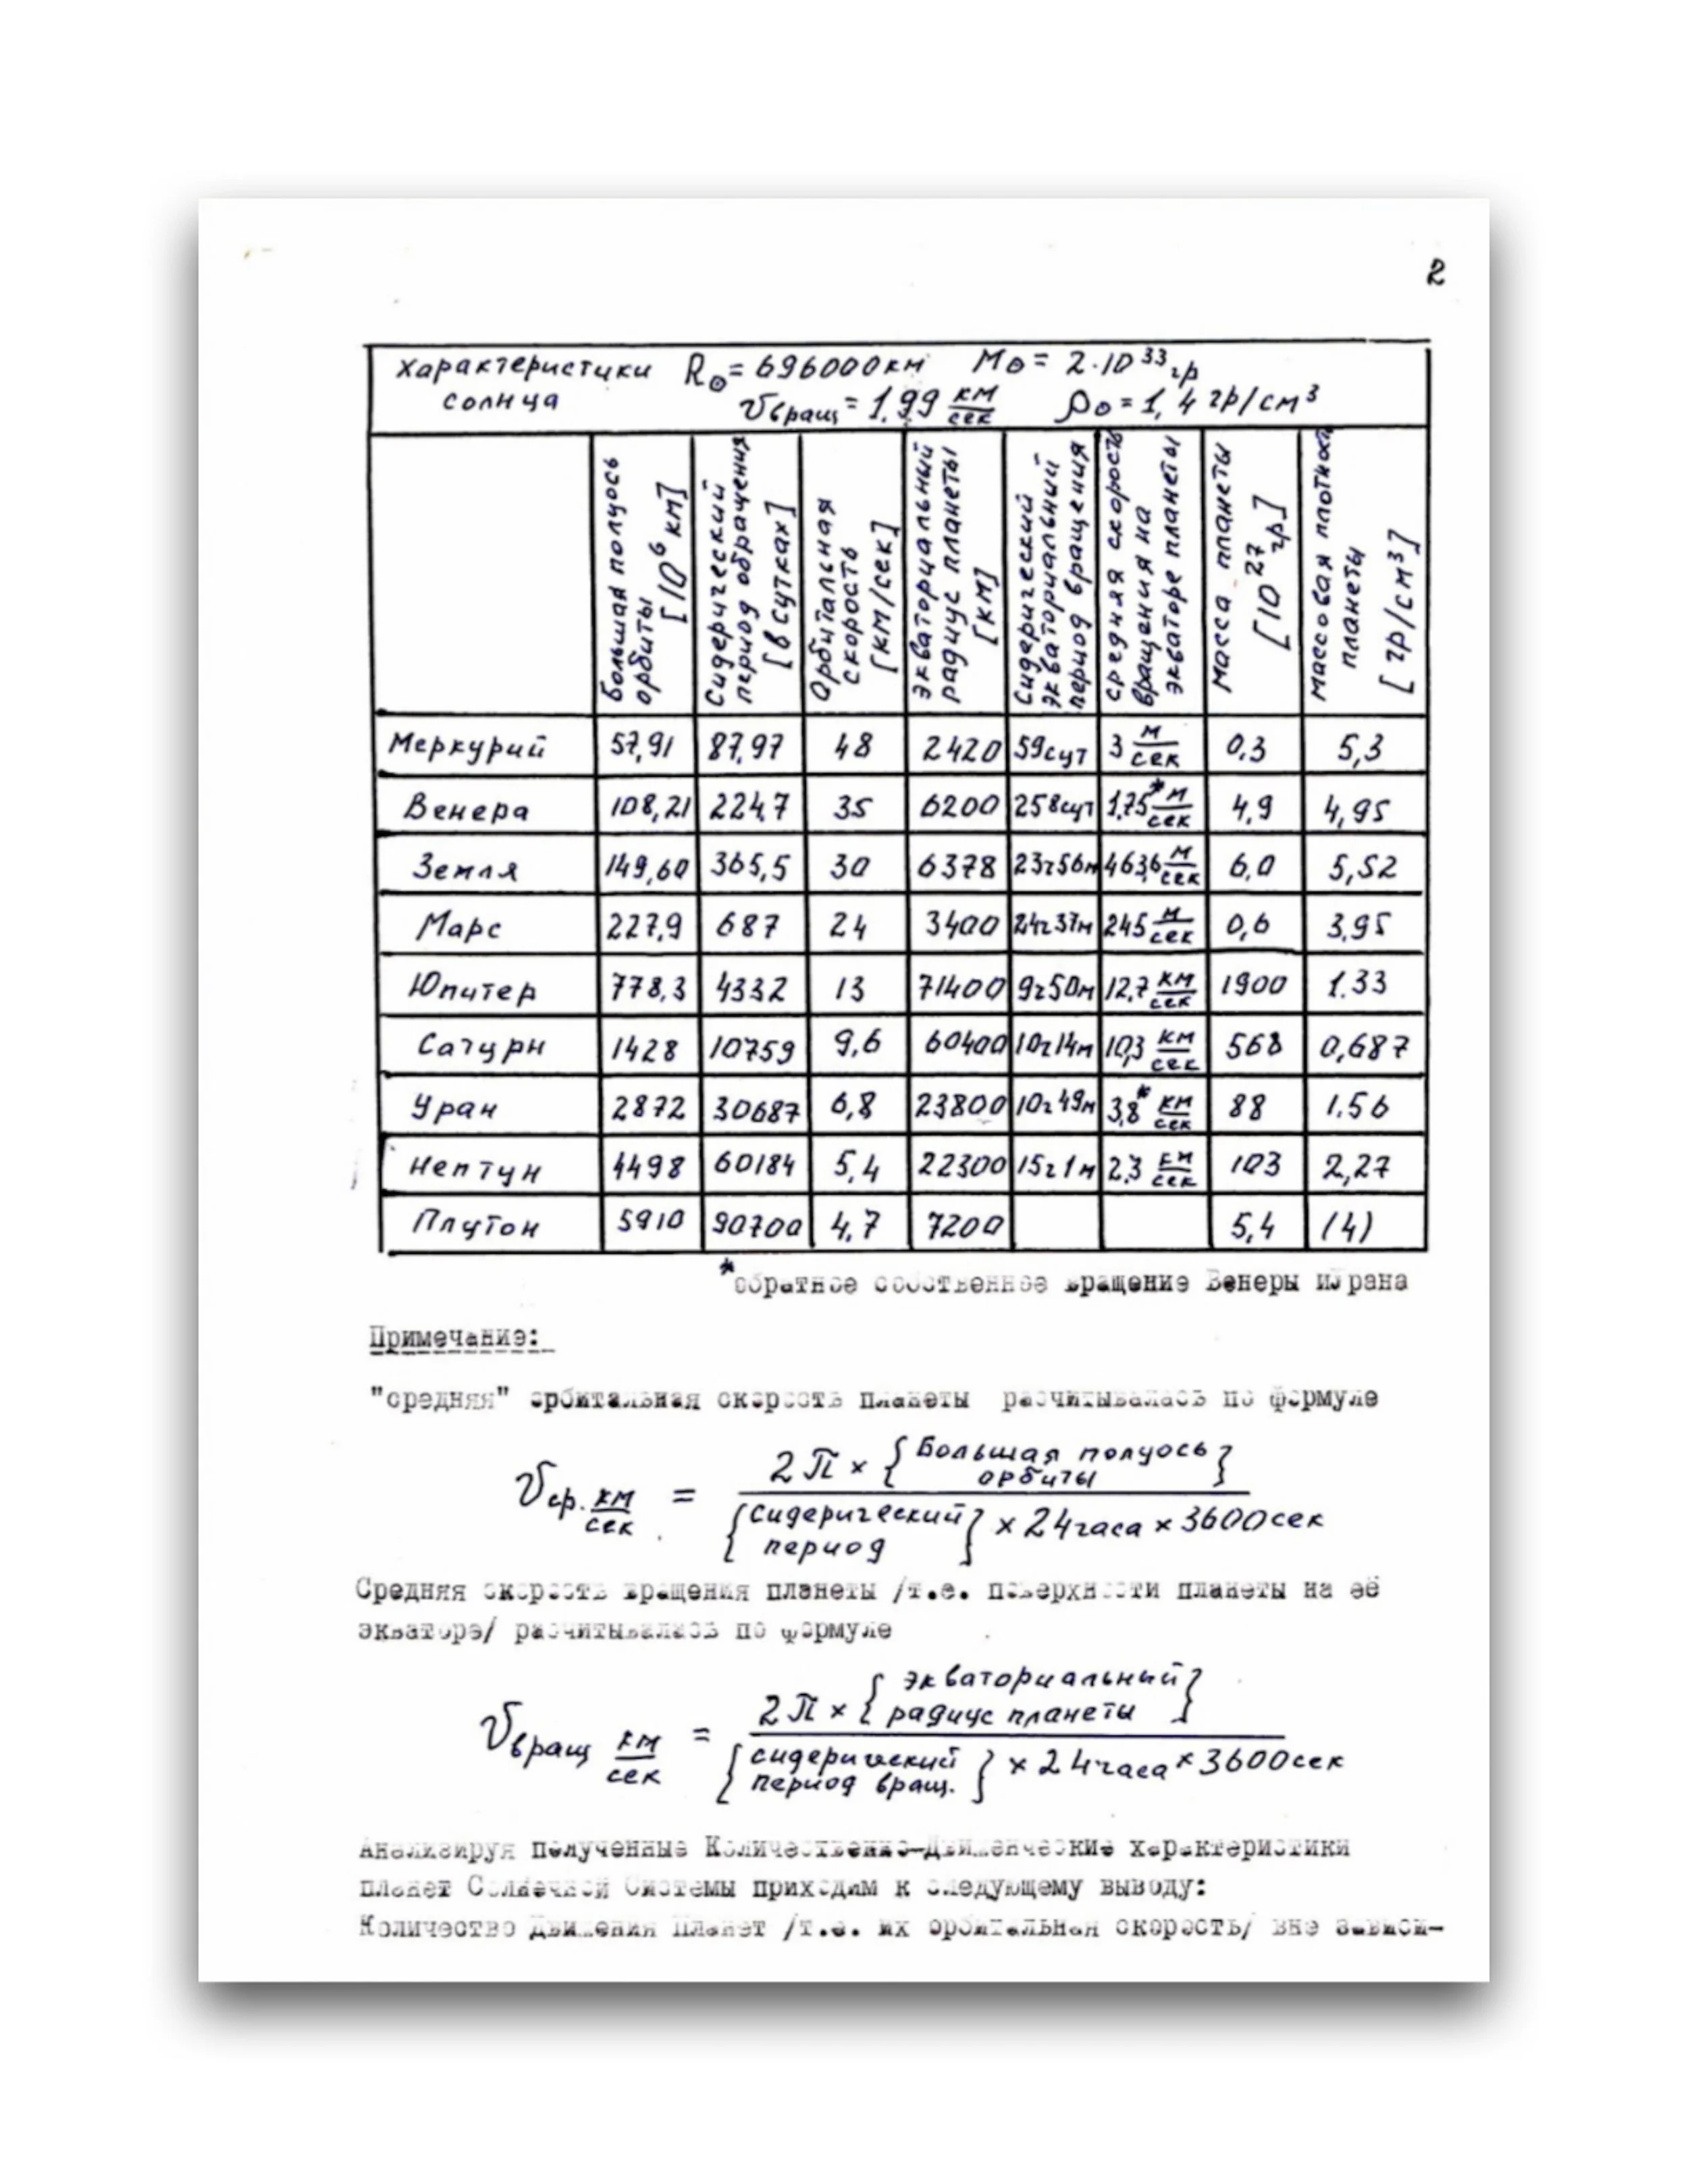 2
Характеристики R⊙ = 696000 км M⊙ = 2·10³³ гр
солнца υвращ = 1,99 км/сек ρ⊙ = 1,4 гр/см³
Большая полуось орбиты [10⁶ км]
Сидерический период обращения [в сутках]
Орбитальная скорость [км/сек]
Экваториальный радиус планеты [км]
Сидерический экваториальный период вращения
Средняя скорость вращения на экваторе планеты
Масса планеты [10²⁷ гр]
Массовая плотность планеты [гр/см³]
Меркурий 57,91 87,97 48 2420 59сут 3 м/сек 0,3 5,3
Венера 108,21 224,7 35 6200 258сут 1,75* м/сек 4,9 4,95
Земля 149,60 365,5 30 6378 23ч56м 463,6 м/сек 6,0 5,52
Марс 227,9 687 24 3400 24ч37м 245 м/сек 0,6 3,95
Юпитер 778,3 4332 13 71400 9ч50м 12,7 км/сек 1900 1.33
Сатурн 1428 10759 9,6 60400 10ч14м 10,3 км/сек 568 0,687
Уран 2872 30687 6,8 23800 10ч49м 3,8* км/сек 88 1.56
Нептун 4498 60184 5,4 22300 15ч1м 2,3 км/сек 103 2,27
Плутон 5910 90700 4,7 7200 5,4 (4)
*обратное собственное вращение Венеры и Урана
Примечание:
"средняя" орбитальная скорость планеты расчитывалась по формуле
υср. км/сек = 2π × {Большая полуось орбиты} / {сидерический период} × 24часа × 3600сек
Средняя скорость вращения планеты /т.е. поверхности планеты на её
экваторе/ расчитывалась по формуле
υвращ км/сек = 2π × {экваториальный радиус планеты} / {сидерический период вращ.} × 24часа × 3600сек
Анализируя полученные Количественно-Движенческие характеристики
планет Солнечной Системы приходим к следующему выводу:
Количество Движения Планет /т.е. их орбитальная скорость/ вне зависи-